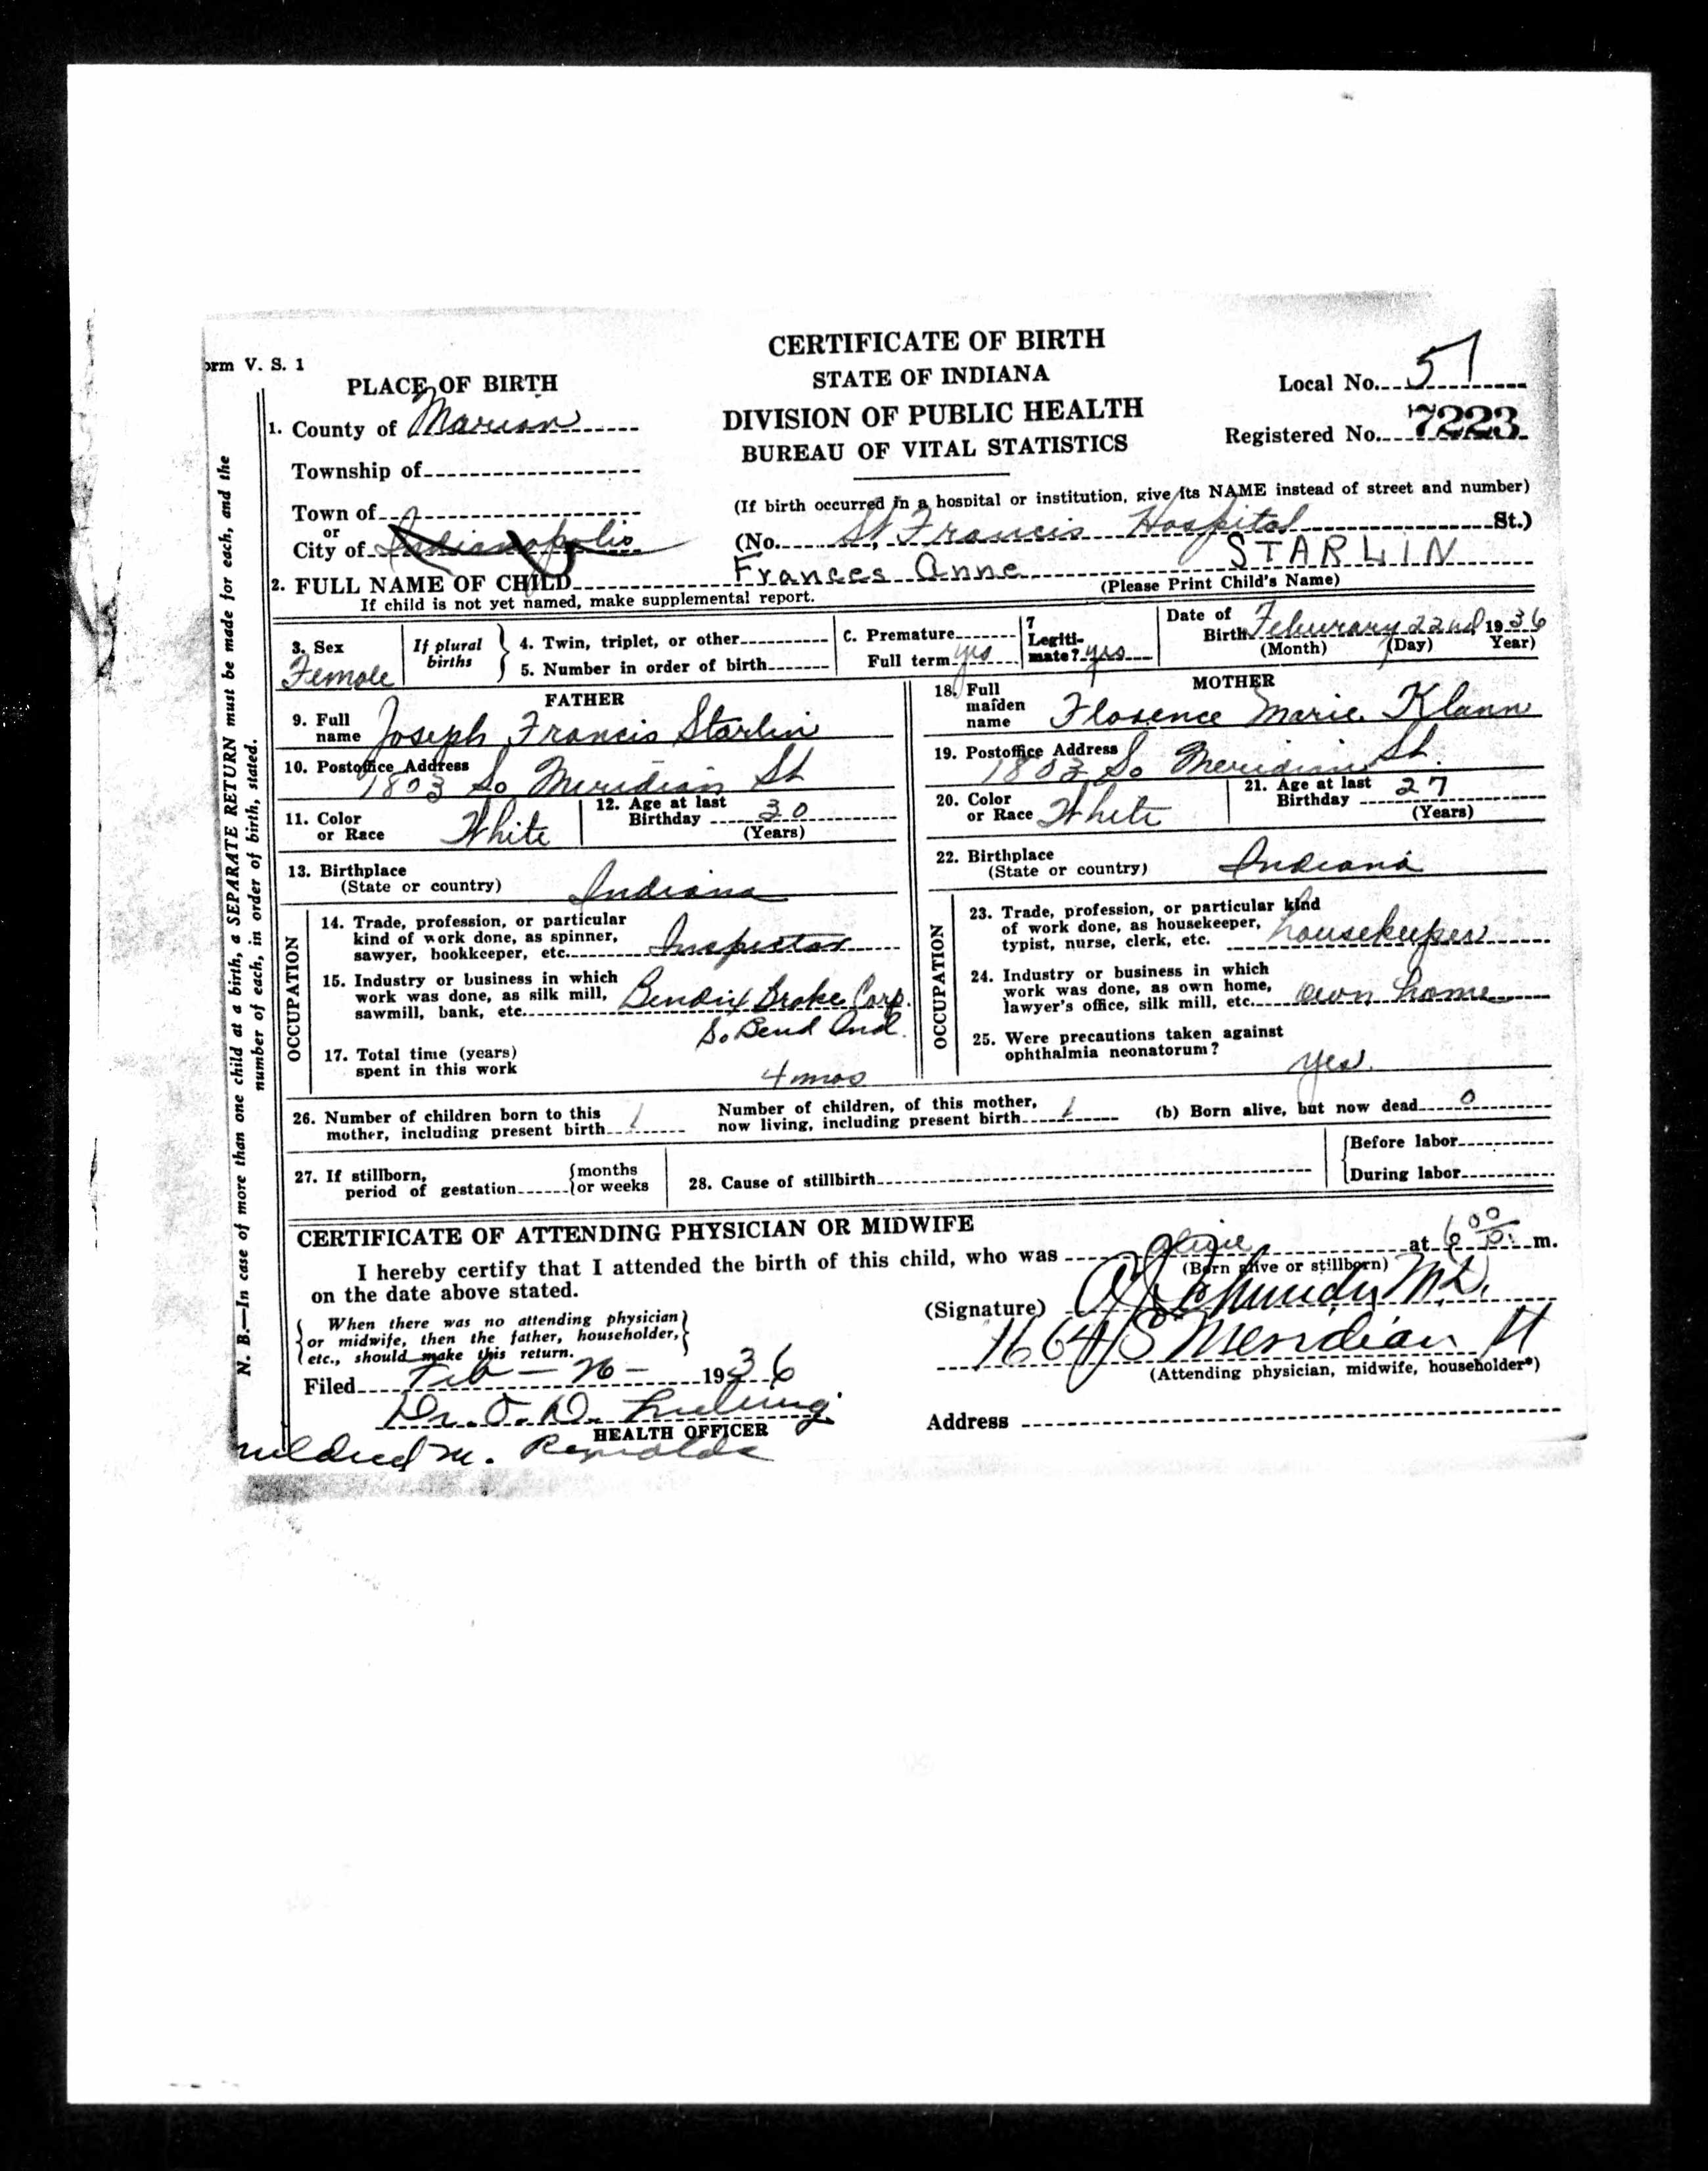 orm V. S. 1
CERTIFICATE OF BIRTH
STATE OF INDIANA
DIVISION OF PUBLIC HEALTH
BUREAU OF VITAL STATISTICS
Local No. 57
Registered No. 7223
PLACE OF BIRTH
1. County of Marion
Township of
Town of
or
City of Indianapolis
(If birth occurred in a hospital or institution, give its NAME instead of street and number)
(No. St Francis Hospital St.)
2. FULL NAME OF CHILD Frances Anne STARLIN
If child is not yet named, make supplemental report. (Please Print Child's Name)
3. Sex Female
If plural births
4. Twin, triplet, or other
5. Number in order of birth
C. Premature
Full term yes
7 Legiti-
mate? yes
Date of
Birth Feburary 22nd 1936
(Month) (Day) Year)
FATHER
9. Full
name Joseph Francis Starlin
10. Postoffice Address
1803 So Meridian St
11. Color
or Race White
12. Age at last
Birthday 30
(Years)
13. Birthplace
(State or country) Indiana
OCCUPATION
14. Trade, profession, or particular
kind of work done, as spinner,
sawyer, bookkeeper, etc. Inspector
15. Industry or business in which
work was done, as silk mill,
sawmill, bank, etc. Bendix Brake Corp.
So Bend Ind.
17. Total time (years)
spent in this work 4 mos
MOTHER
18. Full
maiden
name Florence Marie Klann
19. Postoffice Address
1803 So Meridian St.
20. Color
or Race White
21. Age at last
Birthday 27
(Years)
22. Birthplace
(State or country) Indiana
OCCUPATION
23. Trade, profession, or particular kind
of work done, as housekeeper,
typist, nurse, clerk, etc. housekeeper
24. Industry or business in which
work was done, as own home,
lawyer's office, silk mill, etc. own home
25. Were precautions taken against
ophthalmia neonatorum? yes.
26. Number of children born to this
mother, including present birth 1
Number of children, of this mother,
now living, including present birth 1
(b) Born alive, but now dead 0
27. If stillborn,
period of gestation
months
or weeks
28. Cause of stillbirth
Before labor
During labor
CERTIFICATE OF ATTENDING PHYSICIAN OR MIDWIFE
I hereby certify that I attended the birth of this child, who was alive at 6 00 p. m.
(Born alive or stillborn)
on the date above stated.
When there was no attending physician
or midwife, then the father, householder,
etc., should make this return.
(Signature) M.D.
1664 S Meridian St
(Attending physician, midwife, householder*)
Filed Feb - 26 - 1936
Dr.
HEALTH OFFICER
Address
Mildred M. Reynolds
N. B.—In case of more than one child at a birth, a SEPARATE RETURN must be made for each, and the
number of each, in order of birth, stated.